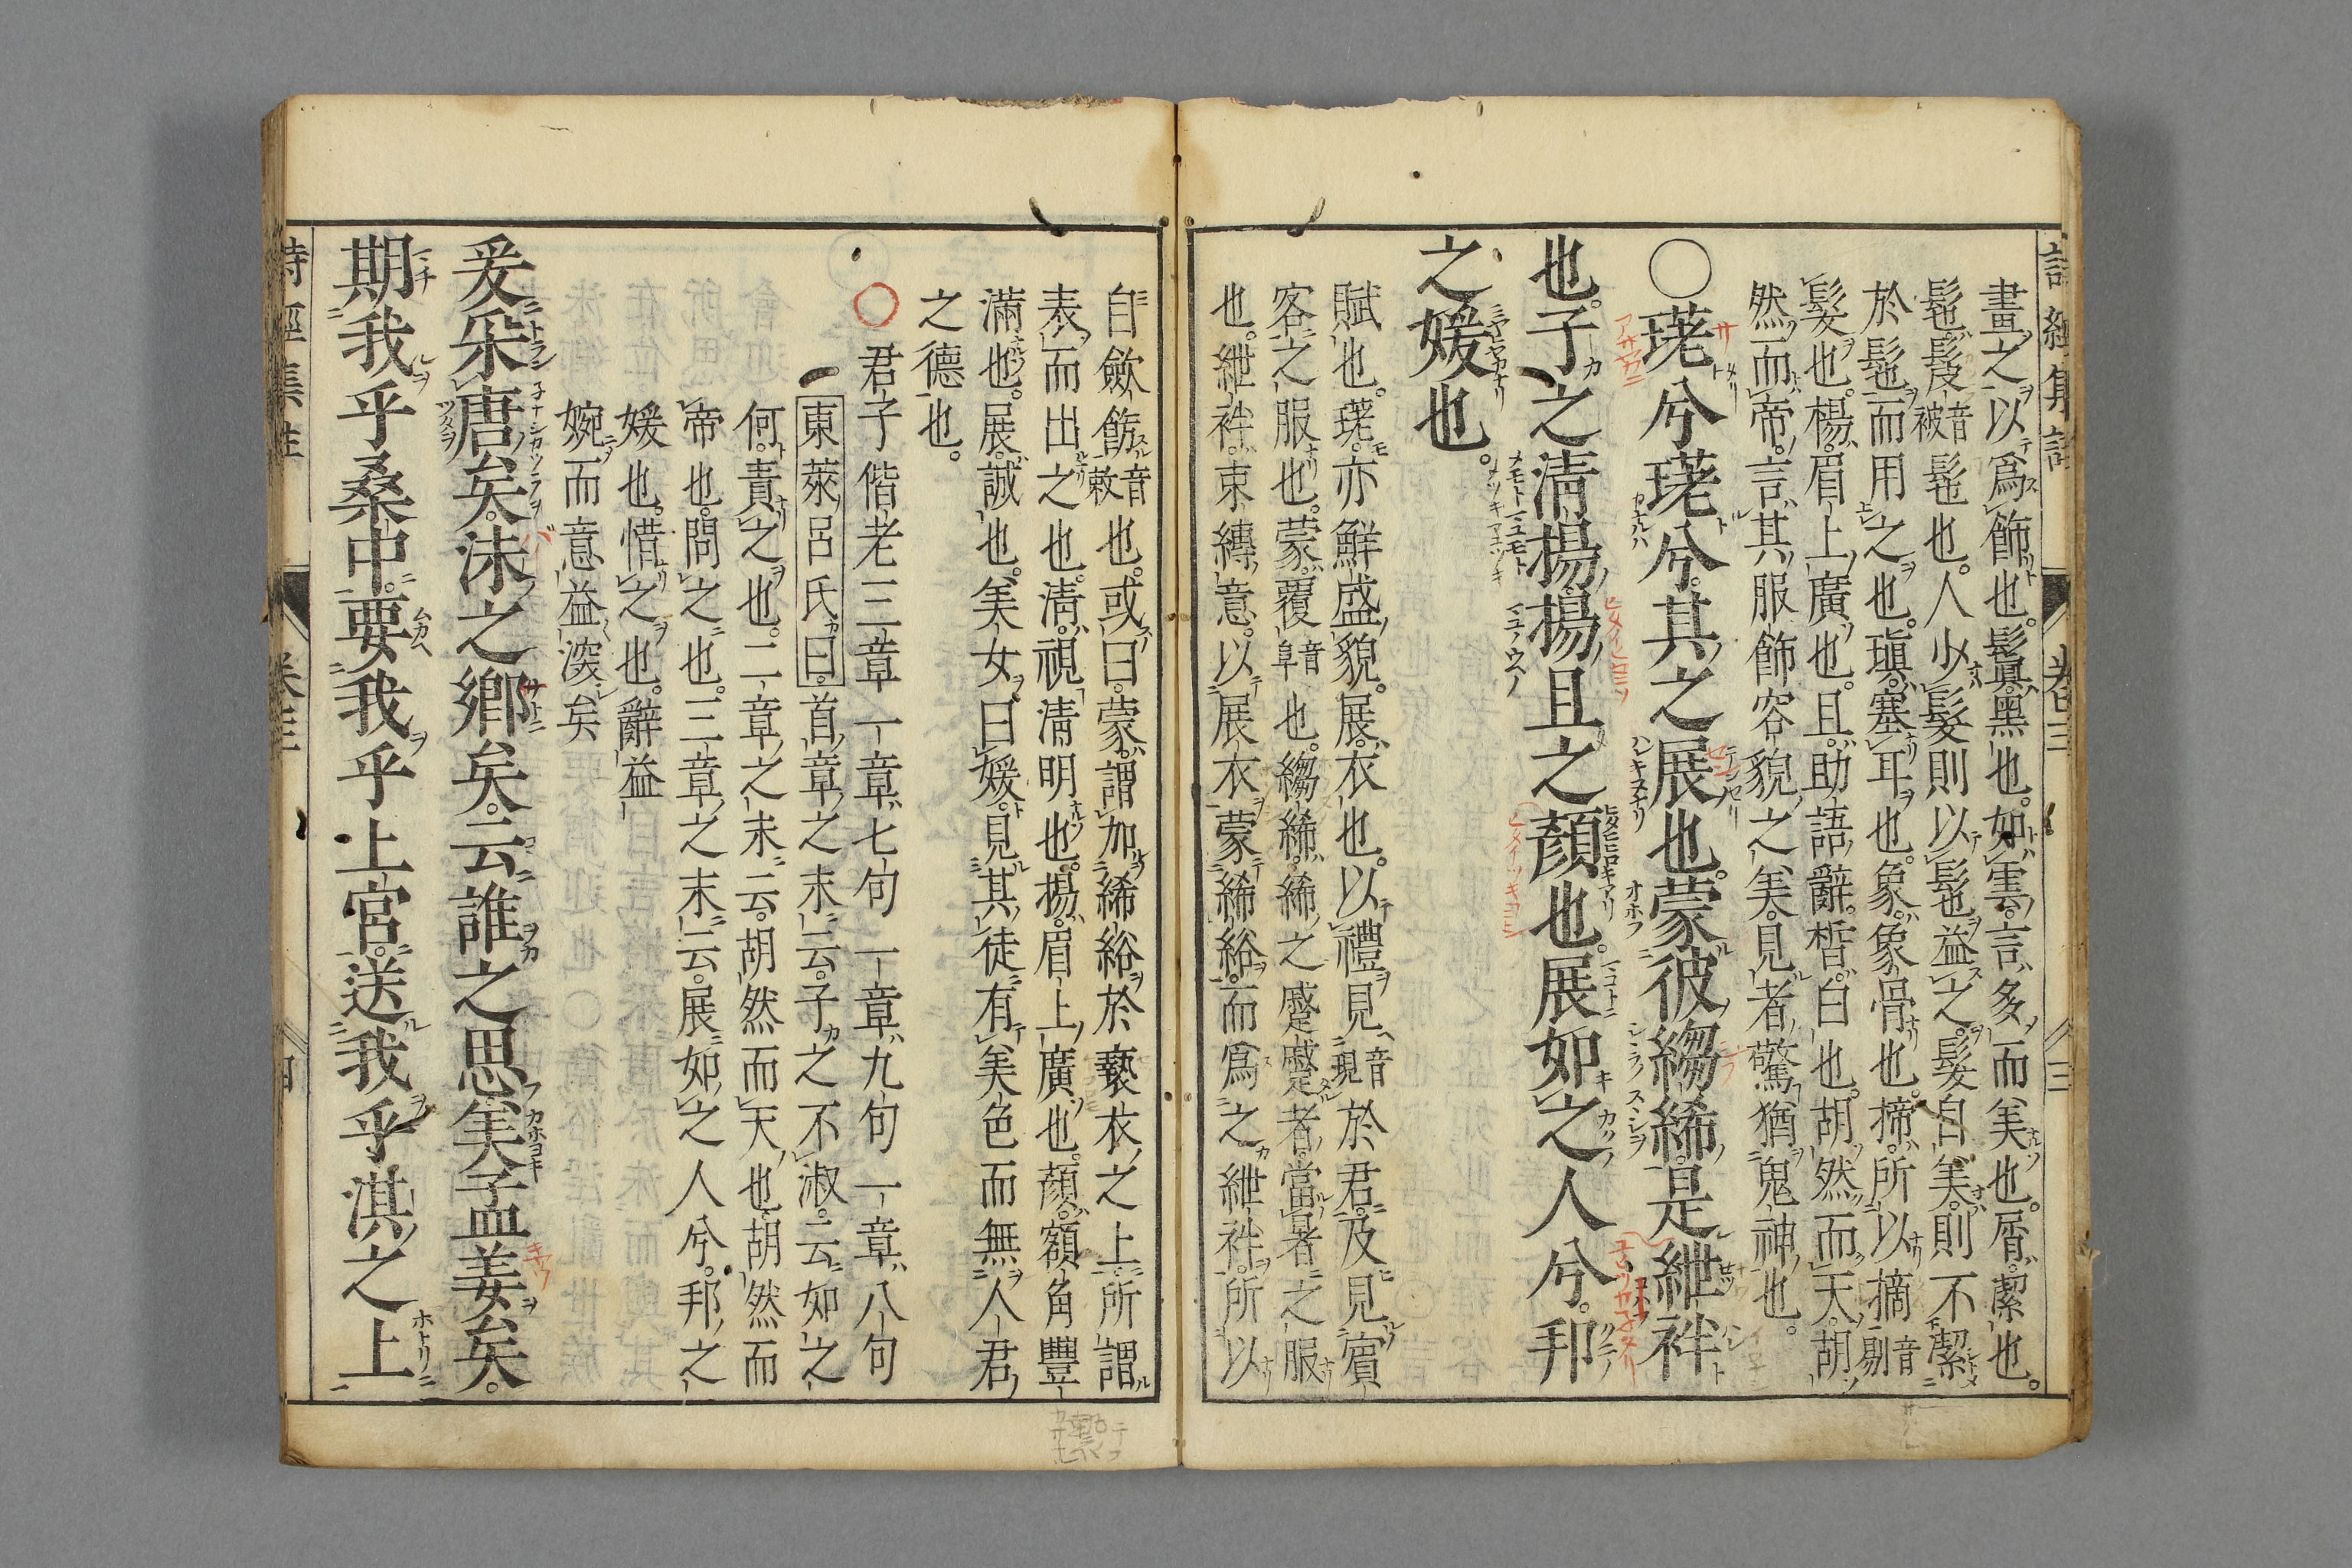 詩經集註 卷三 三
畫之以爲飾也。鬒黑也。如雲。言多而美也。屑潔也。
髢。髲音被髢也。人少髮則以髢益之。髮自美則不潔
於髢而用之也。瑱塞耳也。象象骨也。揥所以摘音剔
髮也。楊眉上廣也。且助語辭。皙白也。胡然而天。胡
然而帝。言其服飾容貌之美。見者驚猶鬼神也。
○瑳兮瑳兮。其之展也。蒙彼縐絺。是紲袢
也。子之淸揚。揚且之顏也。展如之人兮。邦
之媛也。
賦也。瑳亦鮮盛貌。展衣也。以禮見音現於君。及見賓
客之服也。蒙覆音阜也。縐絺。絺之蹙蹙者。當暑之服
也。紲袢。束縛意。以展衣蒙絺綌。而爲之紲袢。所以
自斂飭音敕也。或曰。蒙謂加絺綌於褻衣之上。所謂
表而出之也。淸視淸明也。揚眉上廣也。顏額角豐
滿也。展誠也。美女曰媛。見其徒有美色而無人君
之德也。
○君子偕老三章一章七句一章九句一章八句
東萊呂氏曰。首章之末云。子之不淑。云如之
何。責之也。二章之末云。胡然而天也。胡然而
帝也。問之也。三章之末云。展如之人兮。邦之
媛也。惜之也。辭益
婉而意益深矣
爰采唐矣。沬之鄕矣。云誰之思。美孟姜矣。
期我乎桑中。要我乎上宮。送我乎淇之上
詩經集註 卷三 四